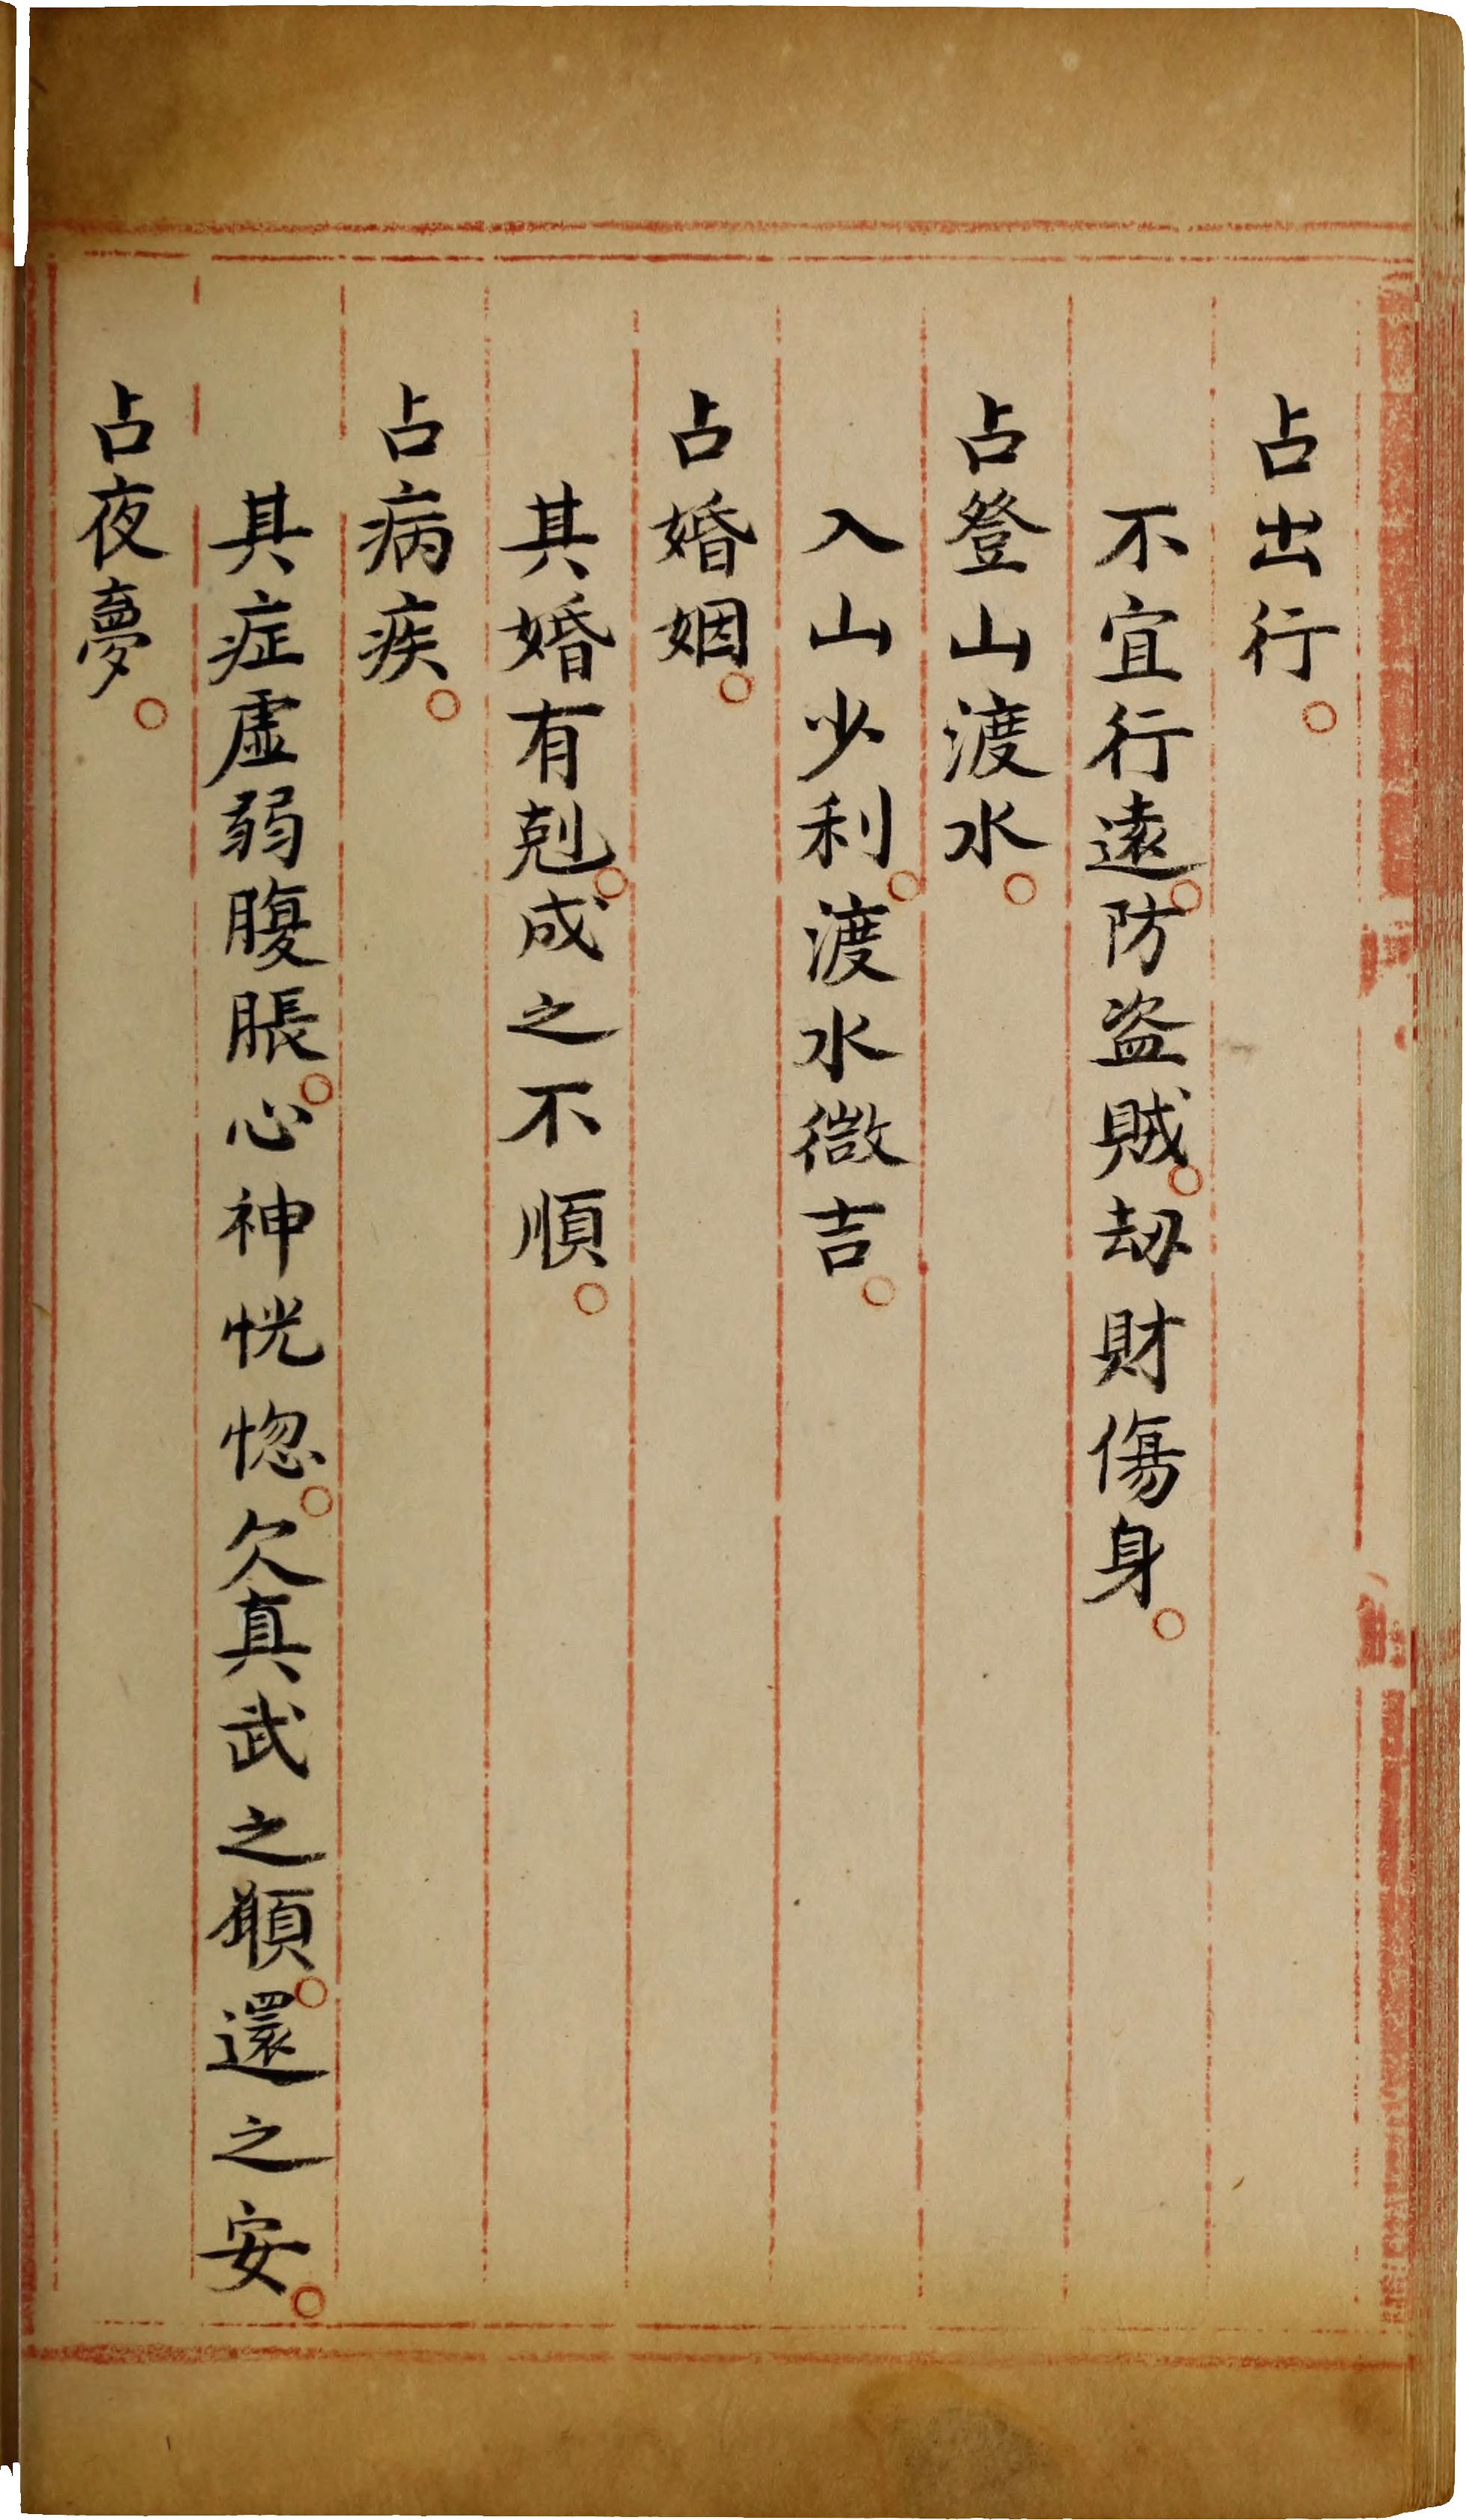 占出行。
不宜行遠。防盗賊。刼財傷身。
占登山渡水。
入山少利。渡水微吉。
占婚姻。
其婚有剋。成之不順。
占病疾。
其症虛弱腹脹。心神恍惚。欠真武之願。還之安。
占夜夢。